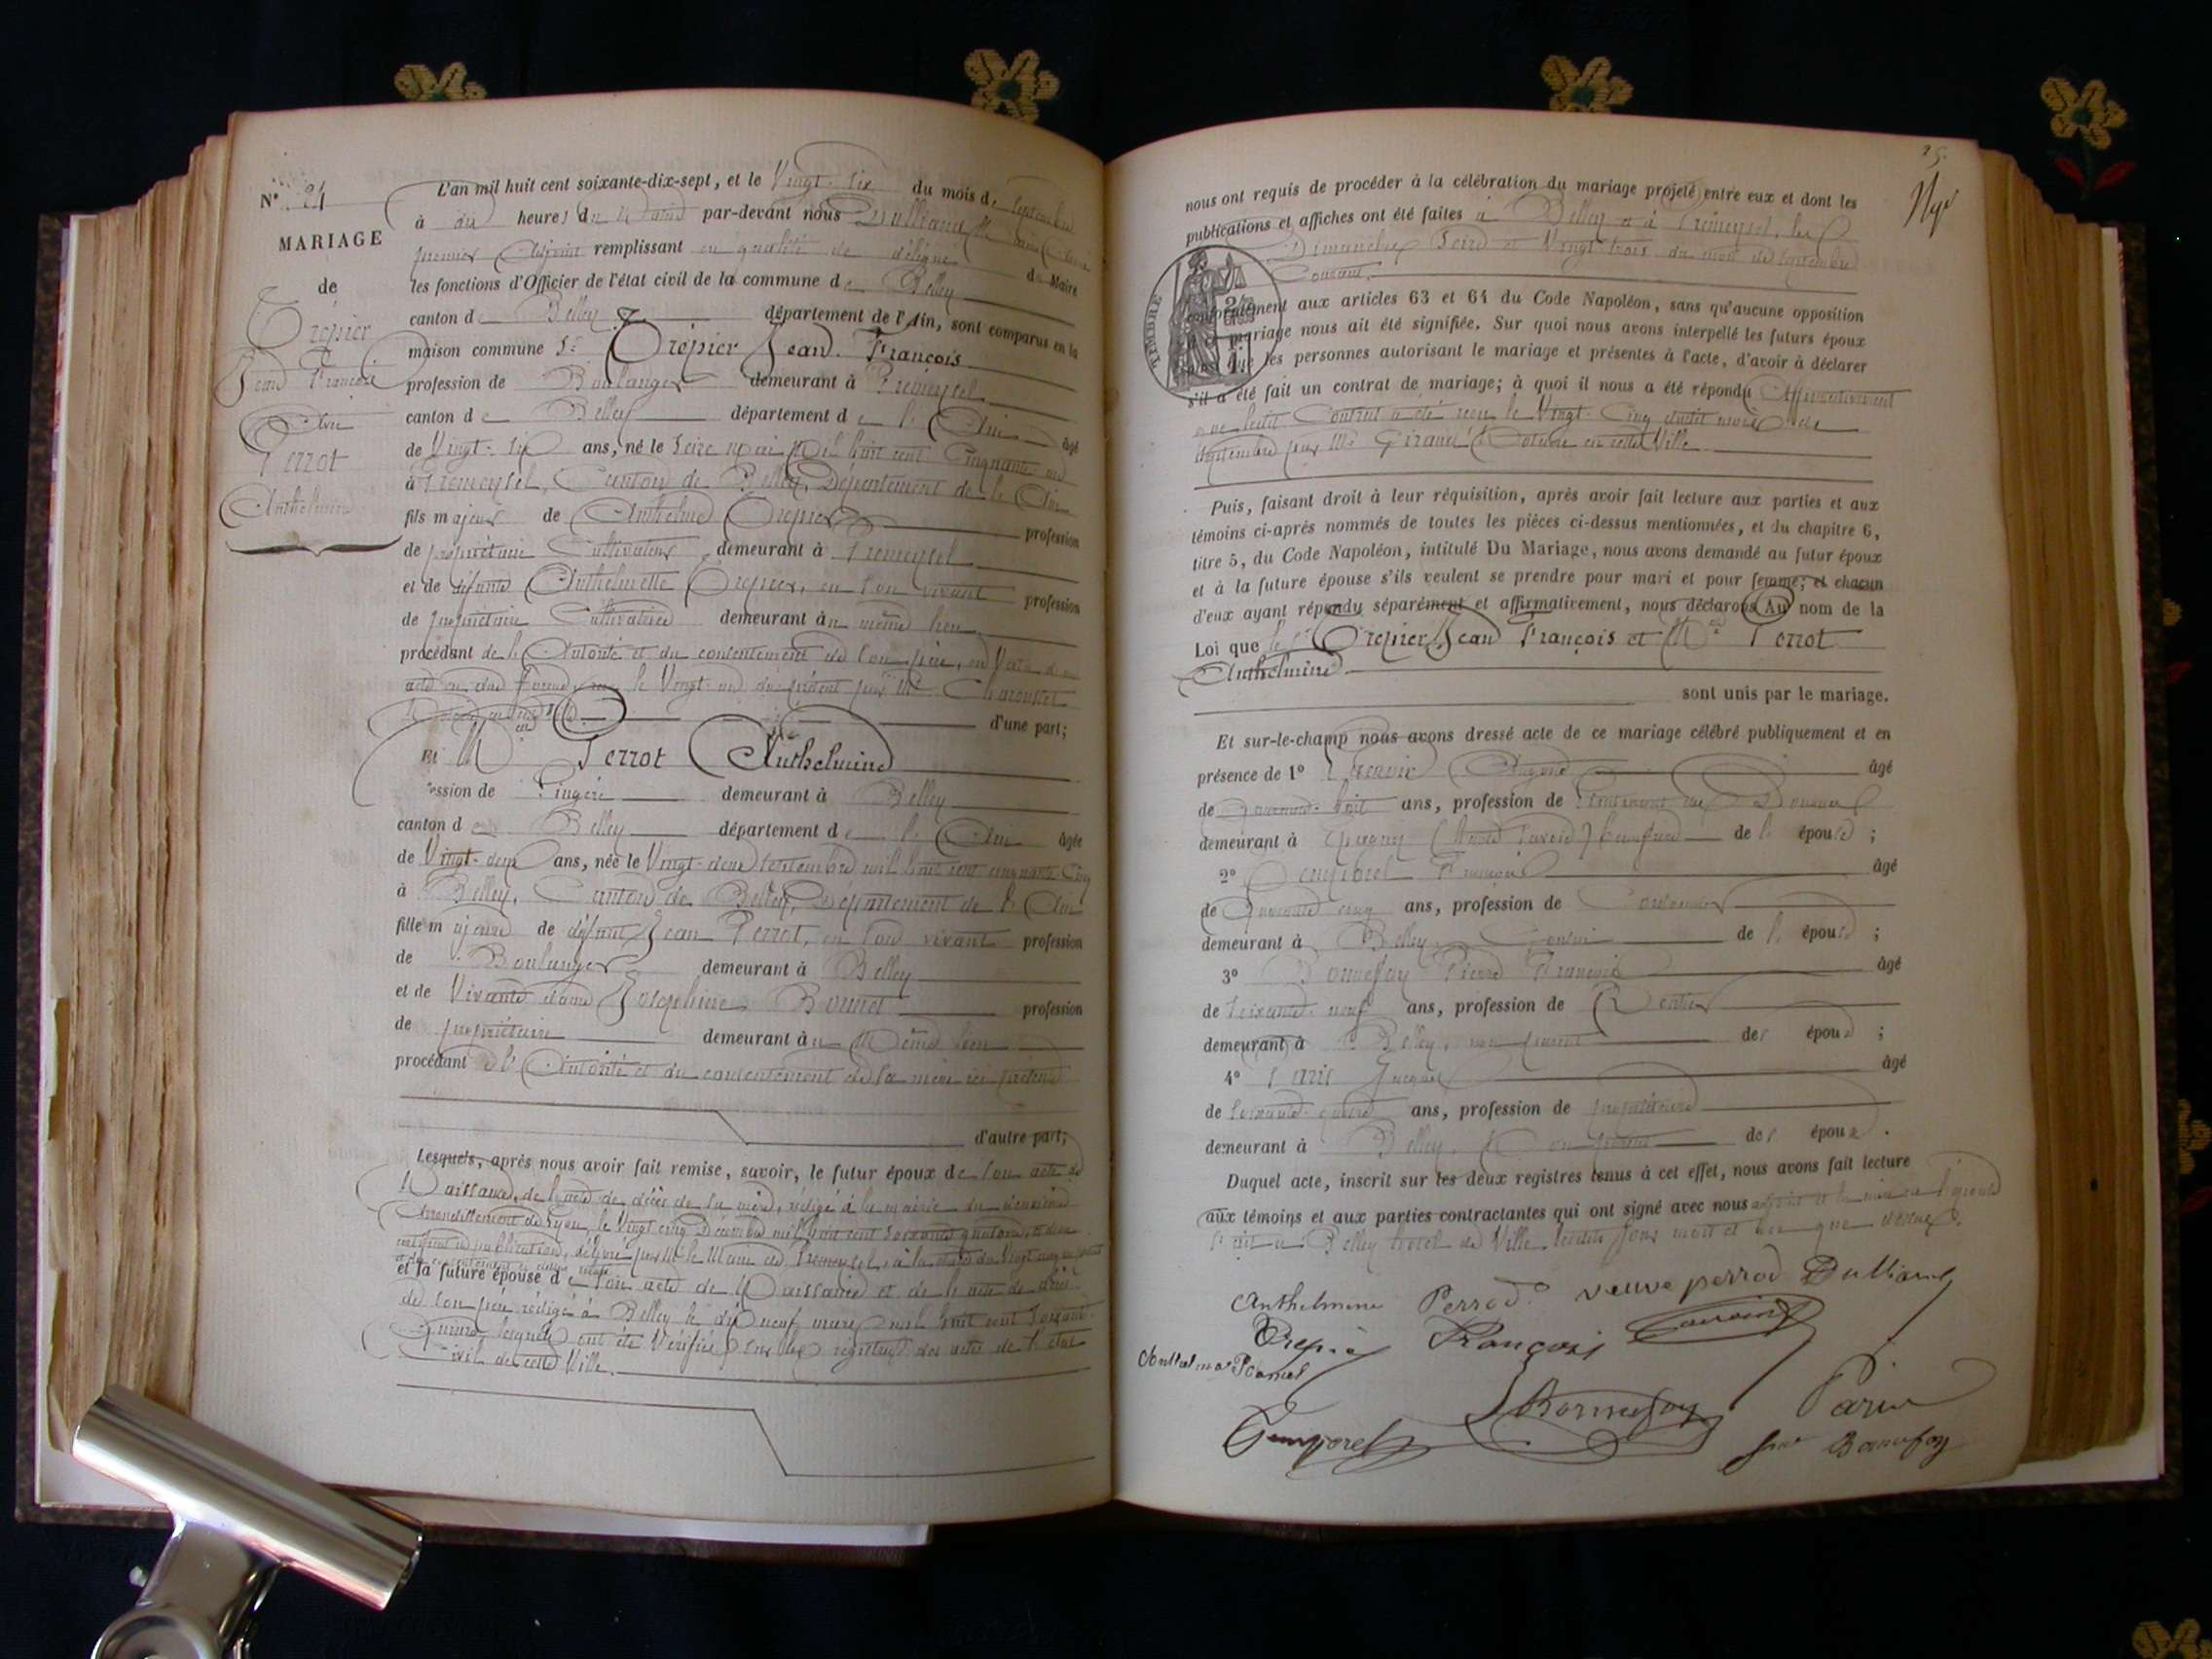 N° 24
MARIAGE
de
Trépier
Jean François
Avec
Perrot
Anthelmine
L'an mil huit cent soixante-dix-sept, et le Vingt-six du mois de Septembre
à dix heures du Matin par-devant nous Dulliand
premier Adjoint remplissant en qualité de délégué du Maire
les fonctions d'Officier de l'état civil de la commune de Belley
canton de Belley département de l'Ain, sont comparus en la
maison commune Sr Trépier Jean François
profession de Boulanger demeurant à Premeysel
canton de Belley département de l'Ain âgé
de Vingt-six ans, né le seize mai Mil huit cent Cinquante un
à Premeysel, Canton de Belley, Département de l'Ain
fils majeur de Anthelme Trépier profession
de propriétaire Cultivateur demeurant à Premeysel
et de défunte Anthelmette Trepier, en son vivant profession
de propriétaire Cultivatrice demeurant au même lieu
procédant de l'Autorité et du consentement de son père, en Vertu d'un
acte en due forme reçu le Vingt-un du présent par Me Charousset
Notaire d'une part;
Et Melle Perrot Anthelmine
profession de Lingère demeurant à Belley
canton de Belley département de l'Ain âgée
de Vingt-deux ans, née le Vingt-deux septembre mil huit cent cinquante Cinq
à Belley, Canton de Belley, Département de l'Ain
fille majeure de défunt Jean Perrot, en son vivant profession
de Boulanger demeurant à Belley
et de Vivante dame Joséphine Bonnet profession
de propriétaire demeurant au Même lieu
procédant de l'Autorité et du consentement de sa mère ici présente
d'autre part;
Lesquels, après nous avoir fait remise, savoir, le futur époux de son acte de
Naissance, de l'acte de décès de sa mère, rédigé à la mairie du deuxième
Arrondissement de Lyon, le Vingt cinq Décembre mil huit cent soixante quatorze, et d'un
certificat de publication, délivré par M. le Maire de Premeysel, à la date du Vingt cinq
et la future épouse de son acte de Naissance et de l'acte de décès
de son père rédigé à Belley le dix neuf mars mil huit cent soixante
quinze, lesquels ont été Vérifiés sur les registres des actes de l'état
Civil de cette Ville.
25
nous ont requis de procéder à la célébration du mariage projeté entre eux et dont les
publications et affiches ont été faites à Belley et à Premeysel, les
Dimanches Seize et Vingt-trois du mois de Septembre
Courant.
TIMBRE
conformément aux articles 63 et 64 du Code Napoléon, sans qu'aucune opposition
mariage nous ait été signifiée. Sur quoi nous avons interpellé les futurs époux
que les personnes autorisant le mariage et présentes à l'acte, d'avoir à déclarer
s'il a été fait un contrat de mariage; à quoi il nous a été répondu Affirmativement
que ledit Contrat a été reçu le Vingt-Cinq dudit mois de
Septembre par Me Giraud Notaire en cette Ville.
Puis, faisant droit à leur réquisition, après avoir fait lecture aux parties et aux
témoins ci-après nommés de toutes les pièces ci-dessus mentionnées, et du chapitre 6,
titre 5, du Code Napoléon, intitulé Du Mariage, nous avons demandé au futur époux
et à la future épouse s'ils veulent se prendre pour mari et pour femme; et chacun
d'eux ayant répondu séparément et affirmativement, nous déclarons Au nom de la
Loi que le Sr Trépier Jean François et Melle Perrot
Anthelmine
sont unis par le mariage.
Et sur-le-champ nous avons dressé acte de ce mariage célébré publiquement et en
présence de 1° âgé
de quarante-huit ans, profession de Lieutenant des Douanes
demeurant à (Haute Savoie) de l'épouse ;
2° Temporel François âgé
de Quarante cinq ans, profession de Cordonnier
demeurant à Belley, Cousin de l'épouse ;
3° Bonnefoy Pierre François âgé
de soixante-neuf ans, profession de Rentier
demeurant à Belley, non parent des époux ;
4° Paris Jacques âgé
de soixante-quatre ans, profession de propriétaire
demeurant à Belley, Non parent des époux .
Duquel acte, inscrit sur les deux registres tenus à cet effet, nous avons fait lecture
aux témoins et aux parties contractantes qui ont signé avec nous adjoint et la mère de l'épouse
Fait à Belley hotel de Ville lesdits jour mois et an que dessus.
Anthelmine Perrod veuve perrod Dulliand
Trepié François
Temporel Bonnefoy Paris